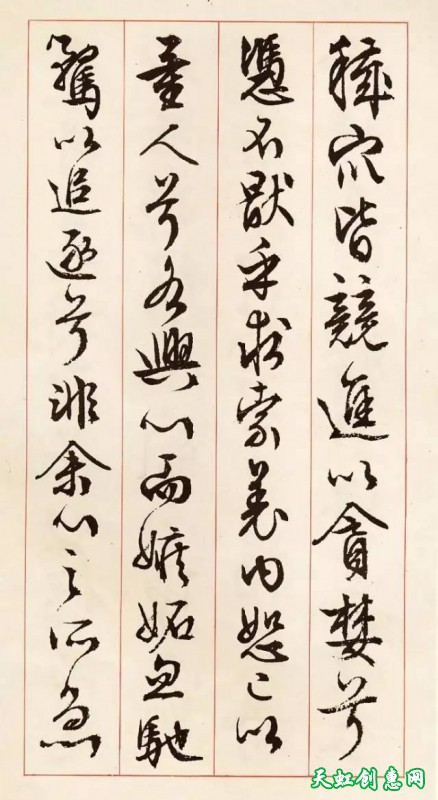 穢眾皆競進以貪婪兮
憑不猒乎求索羌內恕己以
量人兮各興心而嫉妬忽馳
騖以追逐兮非余心之所急
天虹创惠网